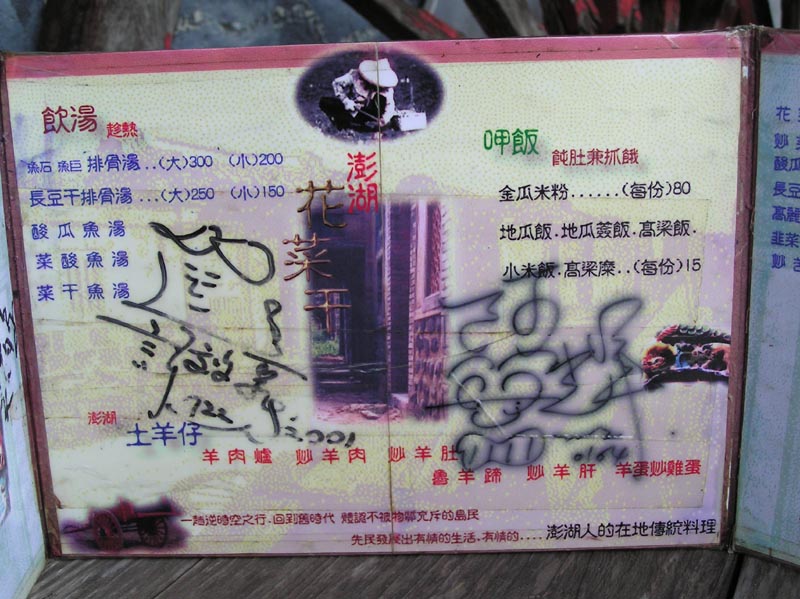 飲湯 趁熱
魚石 魚巨 排骨湯..(大)300 (小)200
長豆干排骨湯...(大)250 (小)150
酸瓜魚湯
菜酸魚湯
菜干魚湯
澎湖
花菜干
呷飯
飩肚兼抓餓
金瓜米粉......(每份)80
地瓜飯.地瓜簽飯.高梁飯.
小米飯.高梁糜..(每份)15
澎湖
土羊仔
羊肉爐 炒羊肉 炒羊肚
魯羊蹄 炒羊肝 羊蛋炒雞蛋
一趟逆時空之行.回到舊時代 體認不被物慾充斥的島民
先民發展出有情的生活.有情的....澎湖人的在地傳統料理
2001
花
炒
酸瓜
長豆
高麗
韭菜
炒